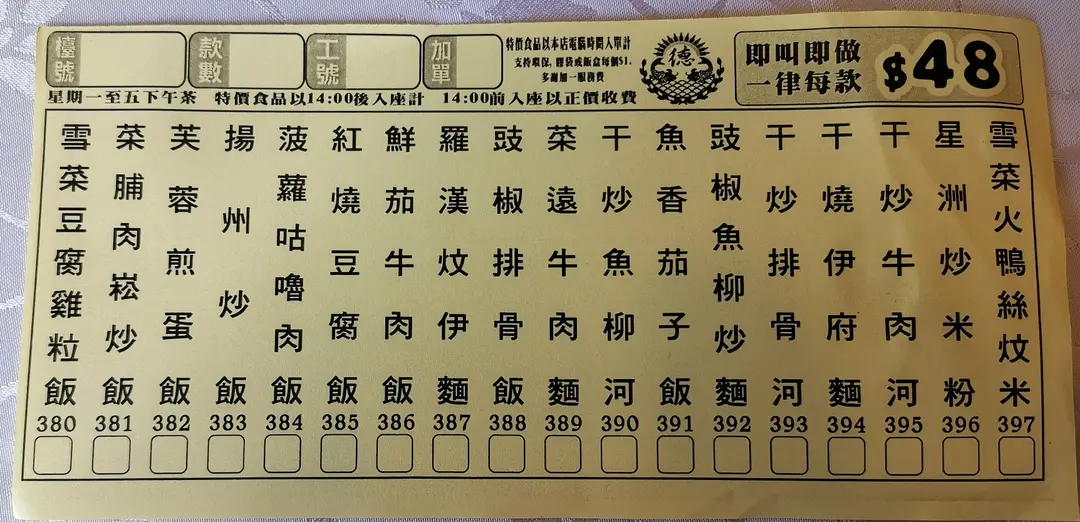 檯號
款數
工號
加單
特價食品以本店電腦時間入單計
支持環保, 膠袋或飯盒每個$1.
多謝加一服務費
德
即叫即做
一律每款
$48
星期一至五下午茶 特價食品以14:00後入座計 14:00前入座以正價收費
雪菜火鴨絲炆米
397
星洲炒米粉
396
干炒牛肉河
395
干燒伊府麵
394
干炒排骨河
393
豉椒魚柳炒麵
392
魚香茄子飯
391
干炒魚柳河
390
菜遠牛肉麵
389
豉椒排骨飯
388
羅漢炆伊麵
387
鮮茄牛肉飯
386
紅燒豆腐飯
385
菠蘿咕嚕肉飯
384
揚州炒飯
383
芙蓉煎蛋飯
382
菜脯肉崧炒飯
381
雪菜豆腐雞粒飯
380